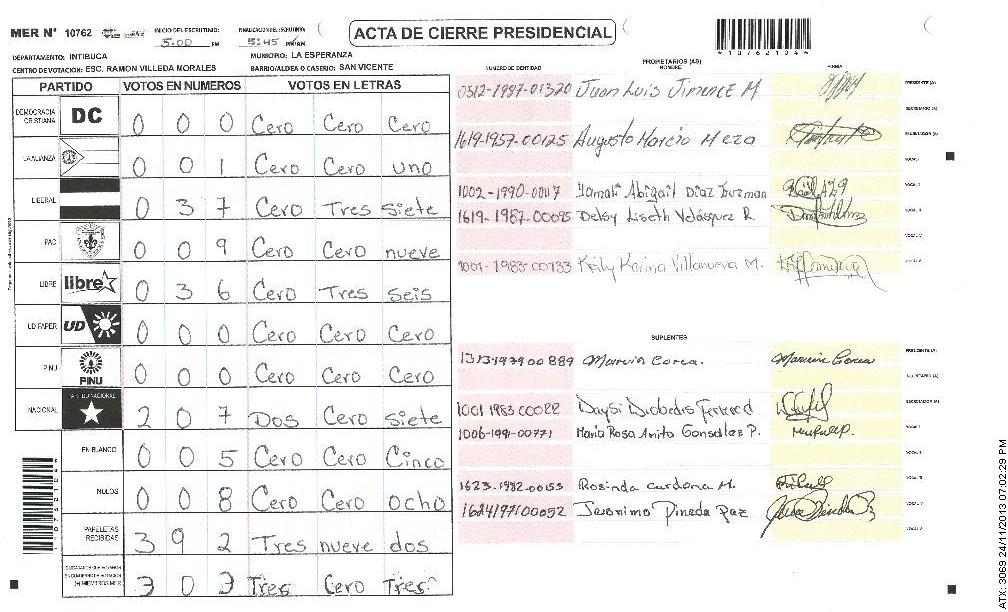 MER N° 10762 INICIO DEL ESCRUTINIO: 5:00 PM FINALIZACION DEL ESCRUTINIO: 5:45 PM/AM
ACTA DE CIERRE PRESIDENCIAL
DEPARTAMENTO: INTIBUCA MUNICIPIO: LA ESPERANZA
CENTRO DE VOTACION: ESC. RAMON VILLEDA MORALES BARRIO/ALDEA O CASERIO: SAN VICENTE
PARTIDO VOTOS EN NUMEROS VOTOS EN LETRAS
DEMOCRACIA CRISTIANA DC 0 0 0 Cero Cero Cero
LA ALIANZA 0 0 1 Cero Cero uno
LIBERAL 0 3 7 Cero Tres siete
PAC 0 0 9 Cero Cero nueve
LIBRE libre 0 3 6 Cero Tres seis
UD FAPER UD 0 0 0 Cero Cero Cero
PINU PINU 0 0 0 Cero Cero Cero
NACIONAL PARTIDO NACIONAL 2 0 7 Dos Cero siete
EN BLANCO 0 0 5 Cero Cero Cinco
NULOS 0 0 8 Cero Cero ocho
PAPELETAS RECIBIDAS 3 9 2 Tres nueve dos
CIUDADANOS QUE VOTARON EN CUADERNO DE VOTACION (+) MIEMBROS MER 3 0 3 Tres Cero Tres
PROPIETARIOS (AS)
NUMERO DE IDENTIDAD NOMBRE FIRMA
0312-1987-01320 Juan Luis Jimenez M PRESIDENTE (A)
SECRETARIO (A)
1619-1957-00125 Augusto Marcio Meza ESCRUTADOR (A)
VOCAL I
1002-1990-00117 Yamali Abigail Diaz Guzman VOCAL II
1619-1987-00095 Delsy Liseth Velásquez R VOCAL III
VOCAL IV
1001-1983-00733 Keily Karina Villanueva M. VOCAL V
SUPLENTES
1313197900889 Marvin Corea. Marvin Corea PRESIDENTE (A)
SECRETARIO (A)
1001 1983 00022 Daysi ESCRUTADOR (A)
1006-1991-00771 Maria Rosa Amita Gonsalez P. VOCAL I
VOCAL II
1623-1982-00153 Rosinda Cardona M. VOCAL III
1624197100052 Jeronimo Pineda Paz VOCAL IV
VOCAL V
ATX: 3069 24/11/2013 07:02:29 PM